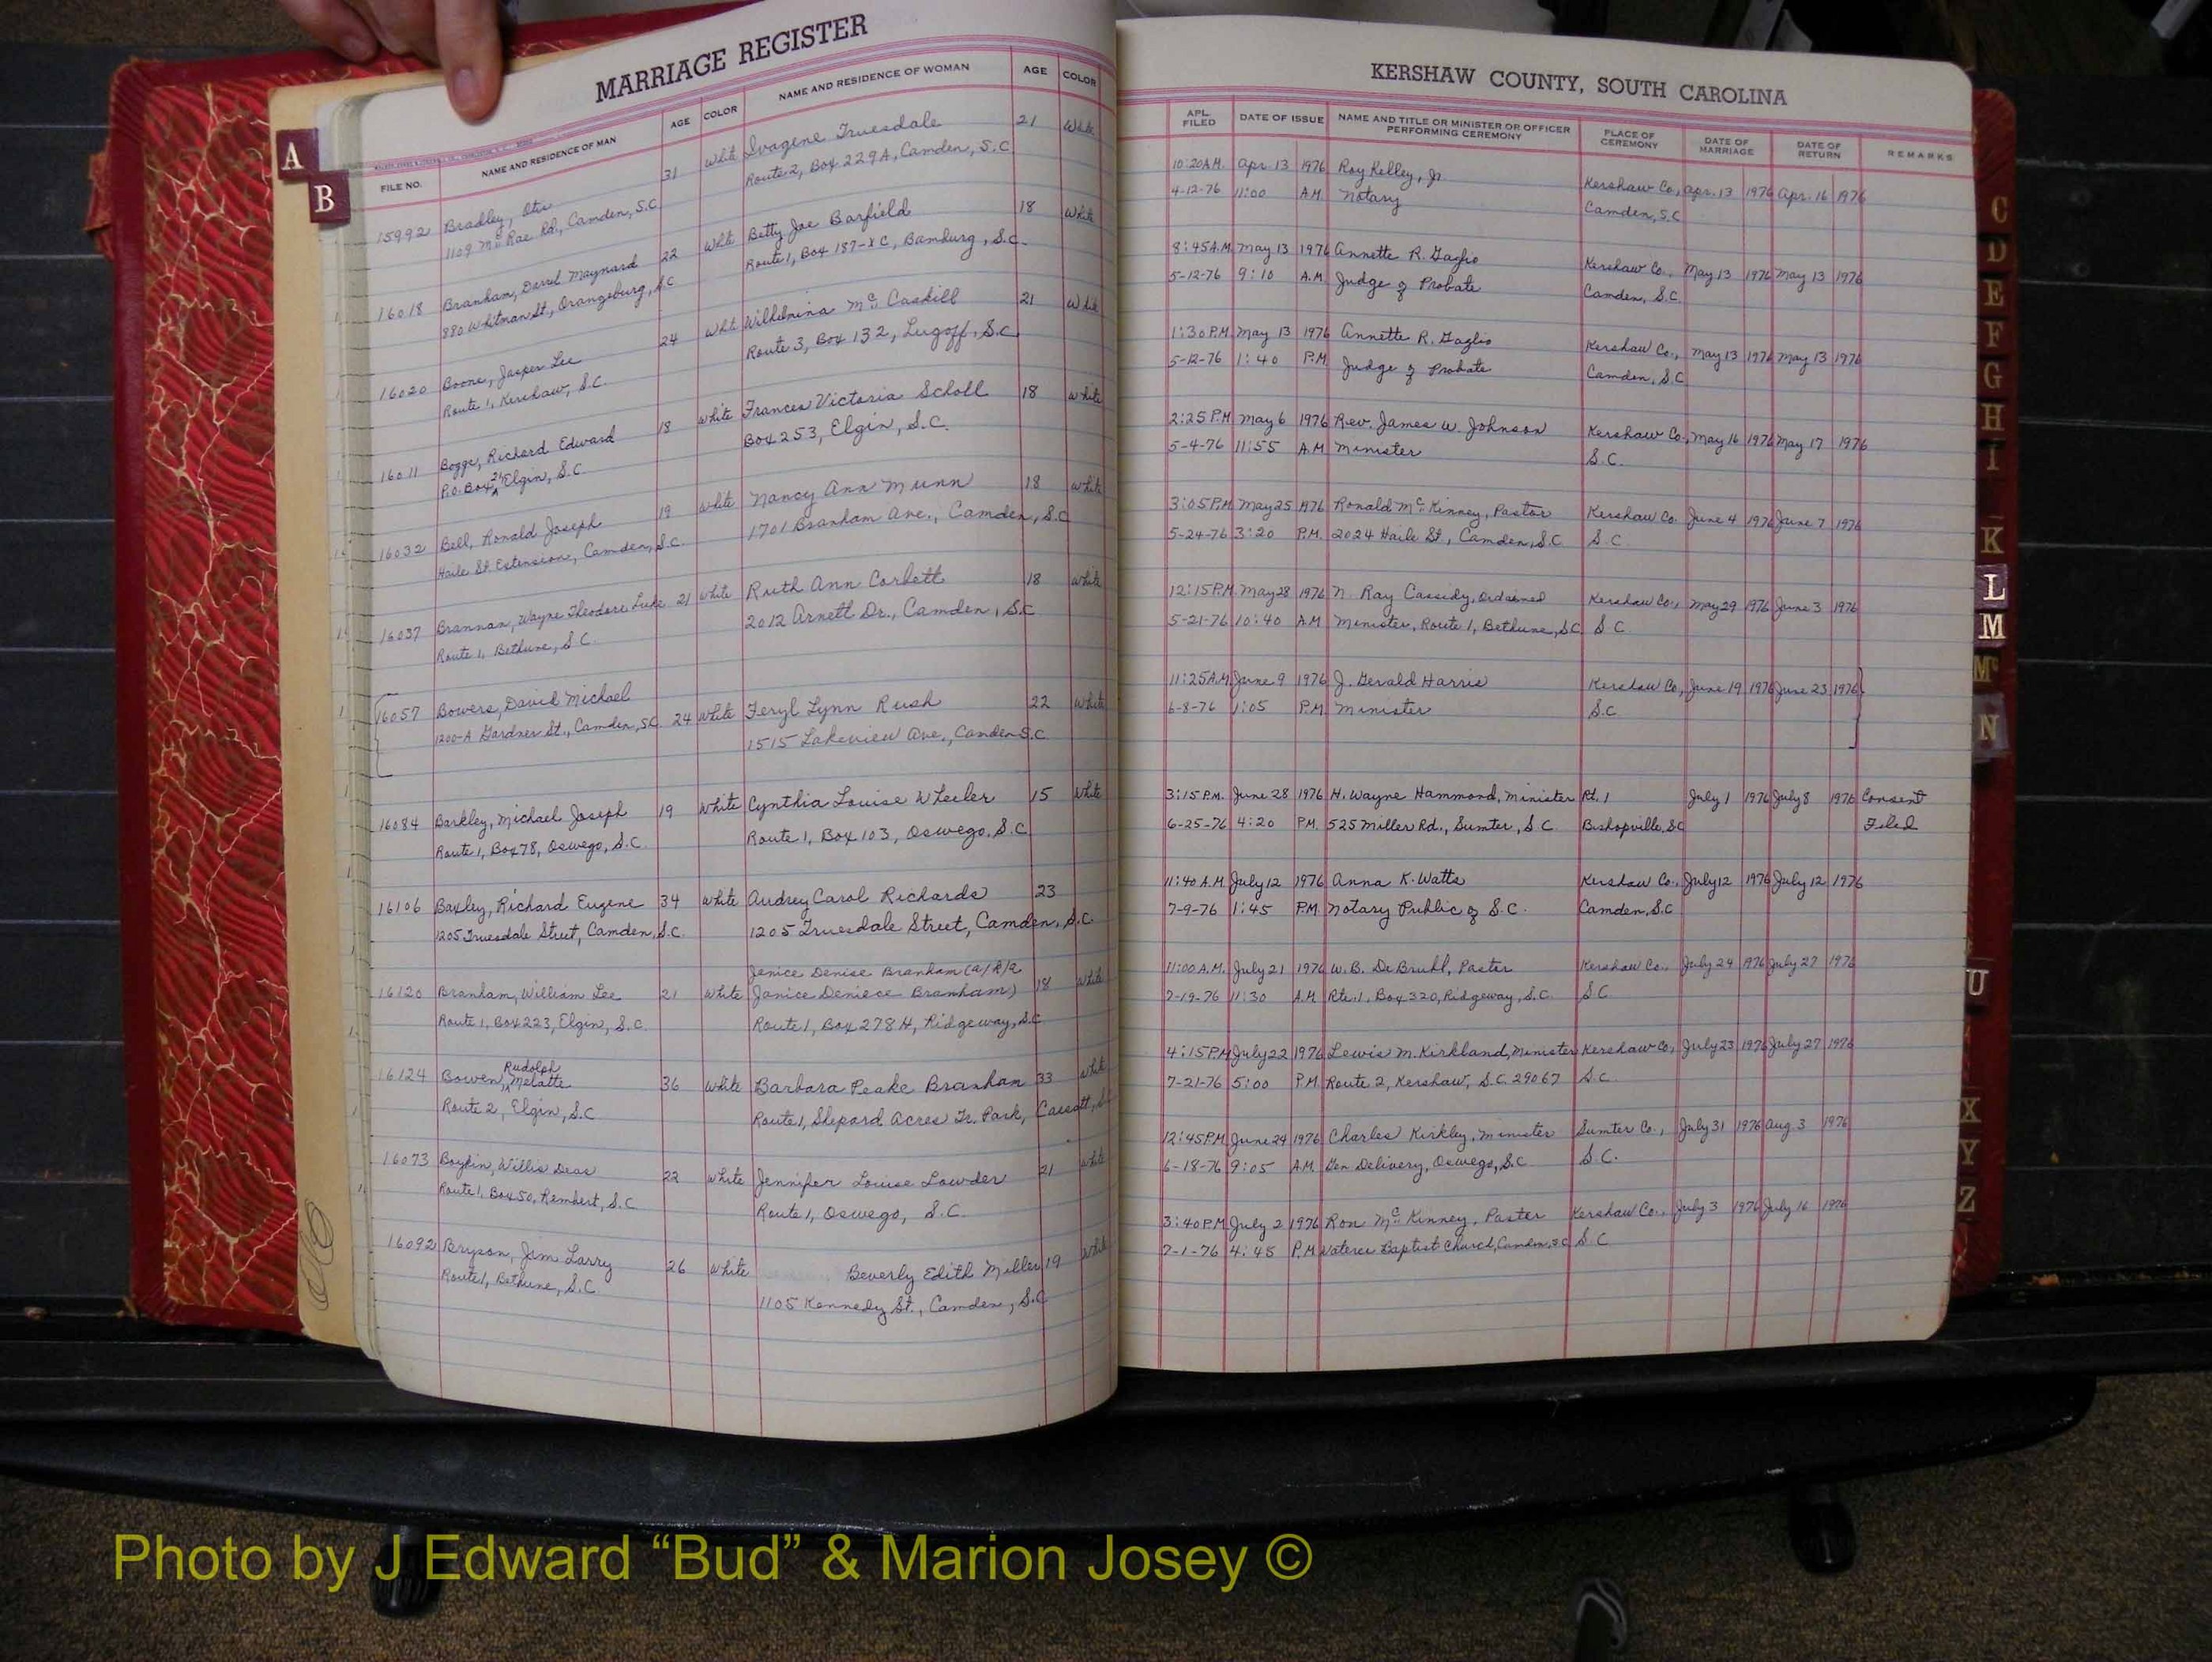 MARRIAGE REGISTER
FILE NO. NAME AND RESIDENCE OF MAN AGE COLOR NAME AND RESIDENCE OF WOMAN AGE COLOR
A
B
15992 Bradley, Otis 31 White Ivagene Truesdale 21 White
1109 Mc Rae Rd., Camden, S.C. Route 2, Box 229A, Camden, S.C.
16018 Branham, Darrel Maynard 22 White Betty Joe Barfield 18 White
880 Whitman St., Orangeburg, S.C. Route 1, Box 187-X C, Bamburg, S.C.
16020 Boone, Jasper Lee 24 White Wilhelmina Mc Caskill 21 White
Route 1, Kershaw, S.C. Route 3, Box 132, Lugoff, S.C.
16011 Boggs, Richard Edward 18 White Frances Victoria Scholl 18 White
P.O. Box 21 Elgin, S.C. Box 253, Elgin, S.C.
16032 Bell, Ronald Joseph 19 White Nancy Ann Munn 18 White
Haile St. Extension, Camden, S.C. 1701 Branham Ave., Camden, S.C.
16037 Brannan, Wayne Theodore Luke 21 White Ruth Ann Corbett 18 White
Route 1, Bethune, S.C. 2012 Arnett Dr., Camden, S.C.
16057 Bowers, David Michael 24 White Feryl Lynn Rush 22 White
1200-A Gardner St., Camden, S.C. 1515 Lakeview Ave., Camden S.C.
16084 Barkley, Michael Joseph 19 White Cynthia Louise Wheeler 15 White
Route 1, Box 78, Oswego, S.C. Route 1, Box 103, Oswego, S.C.
16106 Baxley, Richard Eugene 34 White Audrey Carol Richards 23
1205 Truesdale Street, Camden, S.C. 1205 Truesdale Street, Camden, S.C.
Janice Denise Branham (a/k/a
16120 Branham, William Lee 21 White Janice Deniece Branham) 18 White
Route 1, Box 223, Elgin, S.C. Route 1, Box 278 H, Ridgeway, S.C.
Rudolph
16124 Bowen, Melatte 36 White Barbara Peake Branham 33 White
Route 2, Elgin, S.C. Route 1, Shepard Acres Tr. Park, Cassatt, S.C.
16073 Boykin, Willis Deas 22 White Jennifer Louise Lowder 21 White
Route 1, Box 50, Rembert, S.C. Route 1, Oswego, S.C.
16092 Bryson, Jim Larry 26 White Beverly Edith Miller 19 White
Route 1, Bethune, S.C. 1105 Kennedy St., Camden, S.C.
KERSHAW COUNTY, SOUTH CAROLINA
APL. FILED DATE OF ISSUE NAME AND TITLE OR MINISTER OR OFFICER PERFORMING CEREMONY PLACE OF CEREMONY DATE OF MARRIAGE DATE OF RETURN REMARKS
10:20 A.M. Apr. 13 1976 Roy Kelley, Jr. Kershaw Co., Apr. 13 1976 Apr. 16 1976
4-12-76 11:00 A.M. Notary Camden, S.C.
8:45 A.M. May 13 1976 Annette R. Gaglio Kershaw Co., May 13 1976 May 13 1976
5-12-76 9:10 A.M. Judge of Probate Camden, S.C.
1:30 P.M. May 13 1976 Annette R. Gaglio Kershaw Co., May 13 1976 May 13 1976
5-12-76 1:40 P.M. Judge of Probate Camden, S.C.
2:25 P.M. May 6 1976 Rev. James W. Johnson Kershaw Co., May 16 1976 May 17 1976
5-4-76 11:55 A.M. Minister S.C.
3:05 P.M. May 25 1976 Ronald Mc Kinney, Pastor Kershaw Co. June 4 1976 June 7 1976
5-24-76 3:20 P.M. 2024 Haile St., Camden, S.C. S.C.
12:15 P.M. May 28 1976 N. Ray Cassidy, Ordained Kershaw Co., May 29 1976 June 3 1976
5-21-76 10:40 A.M. Minister, Route 1, Bethune, S.C. S.C.
11:25 A.M. June 9 1976 J. Gerald Harris Kershaw Co., June 19 1976 June 23 1976
6-8-76 1:05 P.M. Minister S.C.
3:15 P.M. June 28 1976 H. Wayne Hammond, Minister Rt. 1 July 1 1976 July 8 1976 Consent
6-25-76 4:20 P.M. 525 Miller Rd., Sumter, S.C. Bishopville, S.C. Filed
11:40 A.M. July 12 1976 Anna K. Watts Kershaw Co., July 12 1976 July 12 1976
7-9-76 1:45 P.M. Notary Public of S.C. Camden, S.C.
11:00 A.M. July 21 1976 W. B. DeBruhl, Pastor Kershaw Co., July 24 1976 July 27 1976
7-19-76 11:30 A.M. Rte. 1, Box 320, Ridgeway, S.C. S.C.
4:15 P.M. July 22 1976 Lewis M. Kirkland, Minister Kershaw Co., July 23 1976 July 27 1976
7-21-76 5:00 P.M. Route 2, Kershaw, S.C. 29067 S.C.
12:45 P.M. June 24 1976 Charles Kirkley, Minister Sumter Co., July 31 1976 Aug 3 1976
6-18-76 9:05 A.M. Gen Delivery, Oswego, S.C. S.C.
3:40 P.M. July 2 1976 Ron Mc Kinney, Pastor Kershaw Co., July 3 1976 July 16 1976
7-1-76 4:45 P.M. Wateree Baptist Church, Camden, S.C. S.C.
C
D
E
F
G
H
I
K
L
M
Mc
N
U
X
Y
Z
Photo by J Edward “Bud” & Marion Josey ©